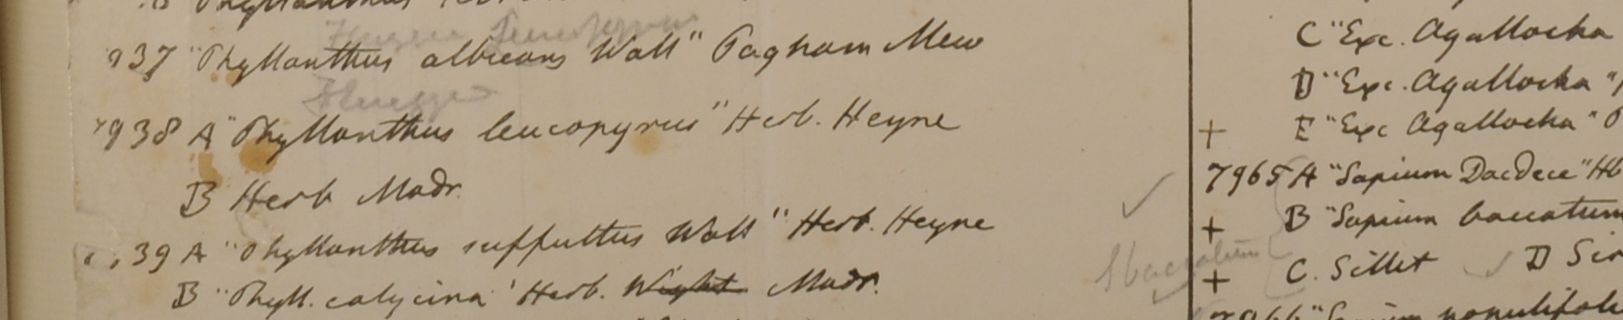 937 "Phyllanthus albicans Wall" Pagham Mew
Fluegge
7938 A "Phyllanthus leucopyrus" Herb. Heyne
B Herb Madr.
39 A "Phyllanthus suffultus Wall" Herb. Heyne
B "Phyll. calycina" Herb. Wight Madr.
C "Exc. Agallocha
D "Exc. Agallocha "
+ E "Exc Agallocha"
7965 A "Sapium Dacdece" Hb
+ B "Sapium baccatum
+ C. Sillet D Sin